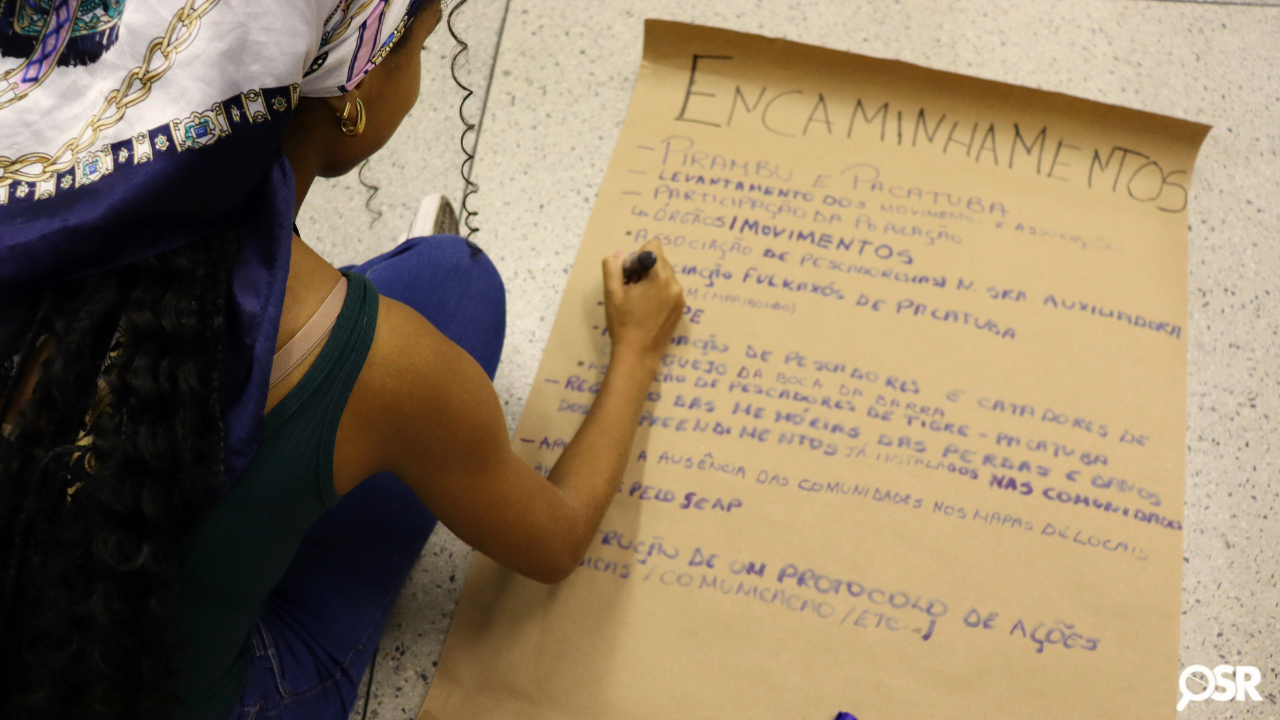 ENCAMINHAMENTOS
- PIRAMBU E PACATUBA
- LEVANTAMENTO DOS MOVIMENTOS E
- PARTICIPAÇÃO DA POPULAÇÃO
↳ ÓRGÃOS/MOVIMENTOS
• ASSOCIAÇÃO DE PESCADORES(AS) N. SRA AUXILIADORA
CIAÇÃO FULKAXÓS DE PACATUBA
M (MARIBONDO)
PE
AÇÃO DE PESCADORES E CATADORES DE
GUEJO DA BOCA DA BARRA
ÃO DE PESCADORES DE TIGRE - PACATUBA
- REG O DAS MEMÓRIAS DAS PERDAS E DANOS
DOS EENDIMENTOS JÁ INSTALADOS NAS COMUNIDADES
- AP A AUSÊNCIA DAS COMUNIDADES NOS MAPAS DE LOCAIS
PELO SEAP
RUÇÃO DE UM PROTOCOLO DE AÇÕES
ICAS / COMUNICACAO / ETC...)
OSR